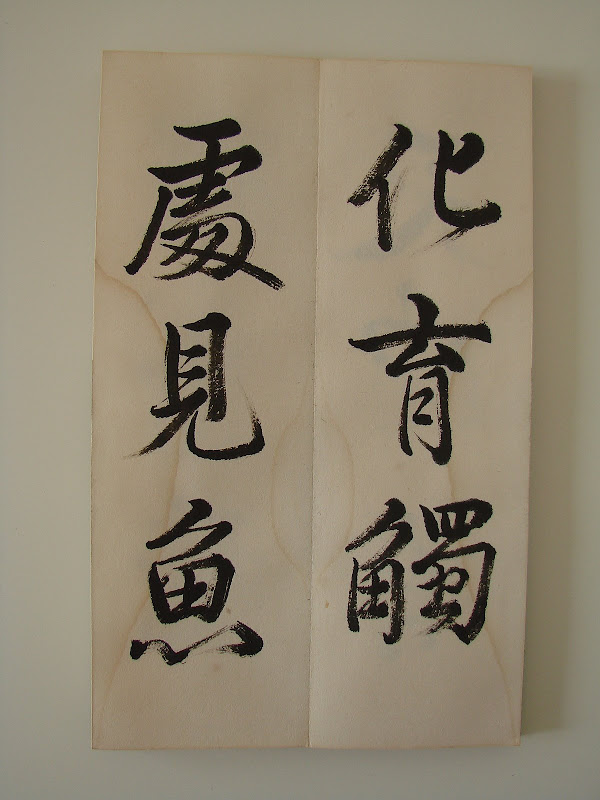 化育觸
處見魚